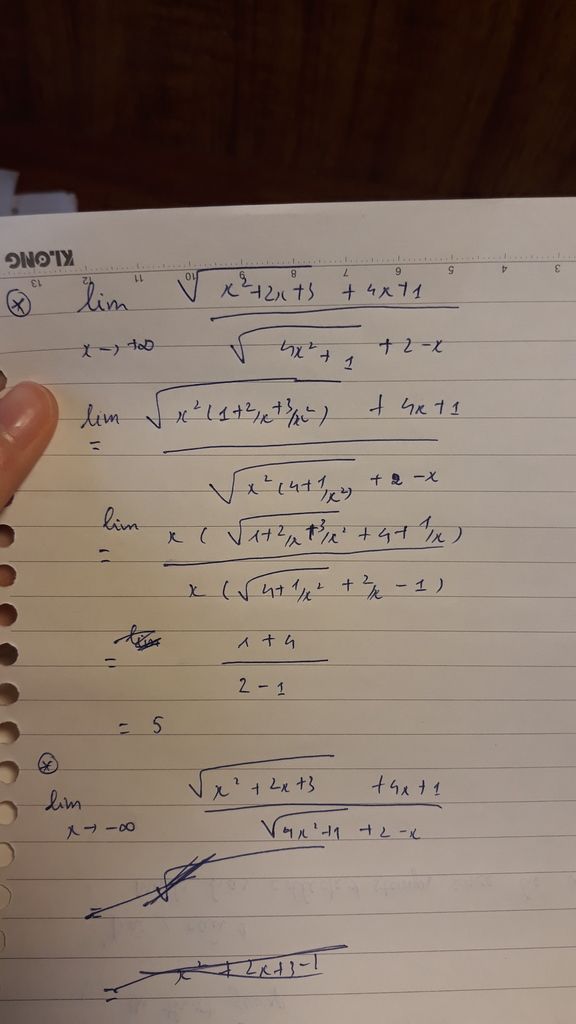 KLONG
13 12 11 10 9 8 7 6 5 4 3
* lim √(x²+2x+3) + 4x+1
x → +∞ √(4x²+1) + 2-x
lim √(x²(1+2/x+3/x²)) + 4x+1
=
√(x²(4+1/x²)) + 2-x
lim x (√(1+2/x+3/x²) + 4+1/x)
=
x (√(4+1/x²) + 2/x - 1)
= 1+4
2-1
= 5
*
lim √(x²+2x+3) +4x+1
x → -∞ √(4x²+1) +2-x
=
x² + 2x+3-1
=